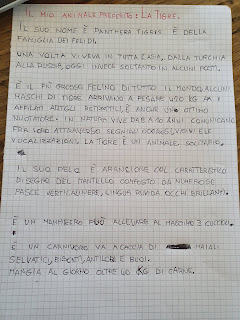 IL MIO ANIMALE PREFERITO: LA TIGRE.
IL SUO NOME È PANTHERA TIGRIS E DELLA
FAMIGLIA DEI FELIDI.
UNA VOLTA VIVEVA IN TUTTA L'ASIA, DALLA TURCHIA
ALLA RUSSIA, OGGI INVECE SOLTANTO IN ALCUNI POSTI.
È IL PIÙ GROSSO FELINO DI TUTTO IL MONDO, ALCUNI
MASCHI DI TIGRE ARRIVANO A PESARE 420 KG HA
AFFILATI ARTIGLI RETRATTILI, È ANCHE UN OTTIMO
NUOTATORE. IN NATURA VIVE DAI 8 AI 10 ANNI. COMUNICANO
FRA LORO ATTRAVERSO SEGNALI ODOROSI, VISIVI E LE
VOCALIZZAZIONI. LA TIGRE È UN ANIMALE SOLITARIO.
IL SUO PELO È ARANCIONE COL CARATTERISTICO
DISEGNO DEL MANTELLO COMPOSTO DA NUMEROSE
FASCE VERTICALI NERE, LINGUA RUVIDA OCCHI BRILLANTI.
È UN MAMMIFERO PUÒ ALLEVARE AL MASSIMO 3 CUCCIOLI.
È UN CARNIVORO VA A CACCIA DI MAIALI
SELVATICI, BISONTI, ANTILOPI E BUOI.
MANGIA AL GIORNO OLTRE 40 KG DI CARNE.